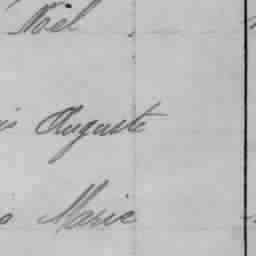 Noël
Auguste
Marie